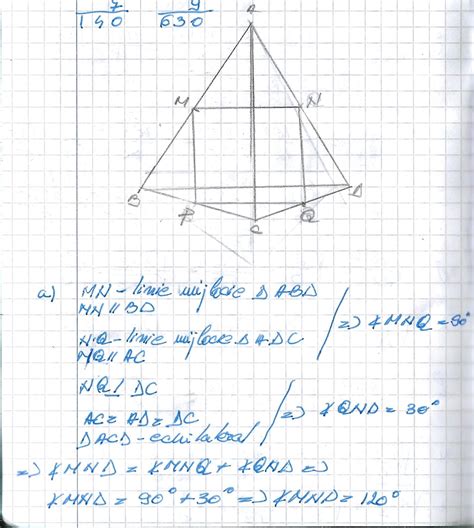 7 9
140 630
A
M N
B D
P Q
C
a) MN - linie mijlocie Δ ABD
MN ∥ BD
NQ - linie mijlocie Δ ADC
NQ ∥ AC
⇒ ∢MNQ = 90°
NQ ⊥ DC
AC = AD = DC
ΔACD - echilateral
⇒ ∢QND = 30°
⇒ ∢MND = ∢MNQ + ∢QND ⇒
∢MND = 90° + 30° ⇒ ∢MND = 120°